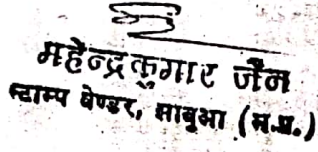 महेन्द्रकुमार जैन
स्टाम्प वेण्डर, झाबुआ (म.प्र.)